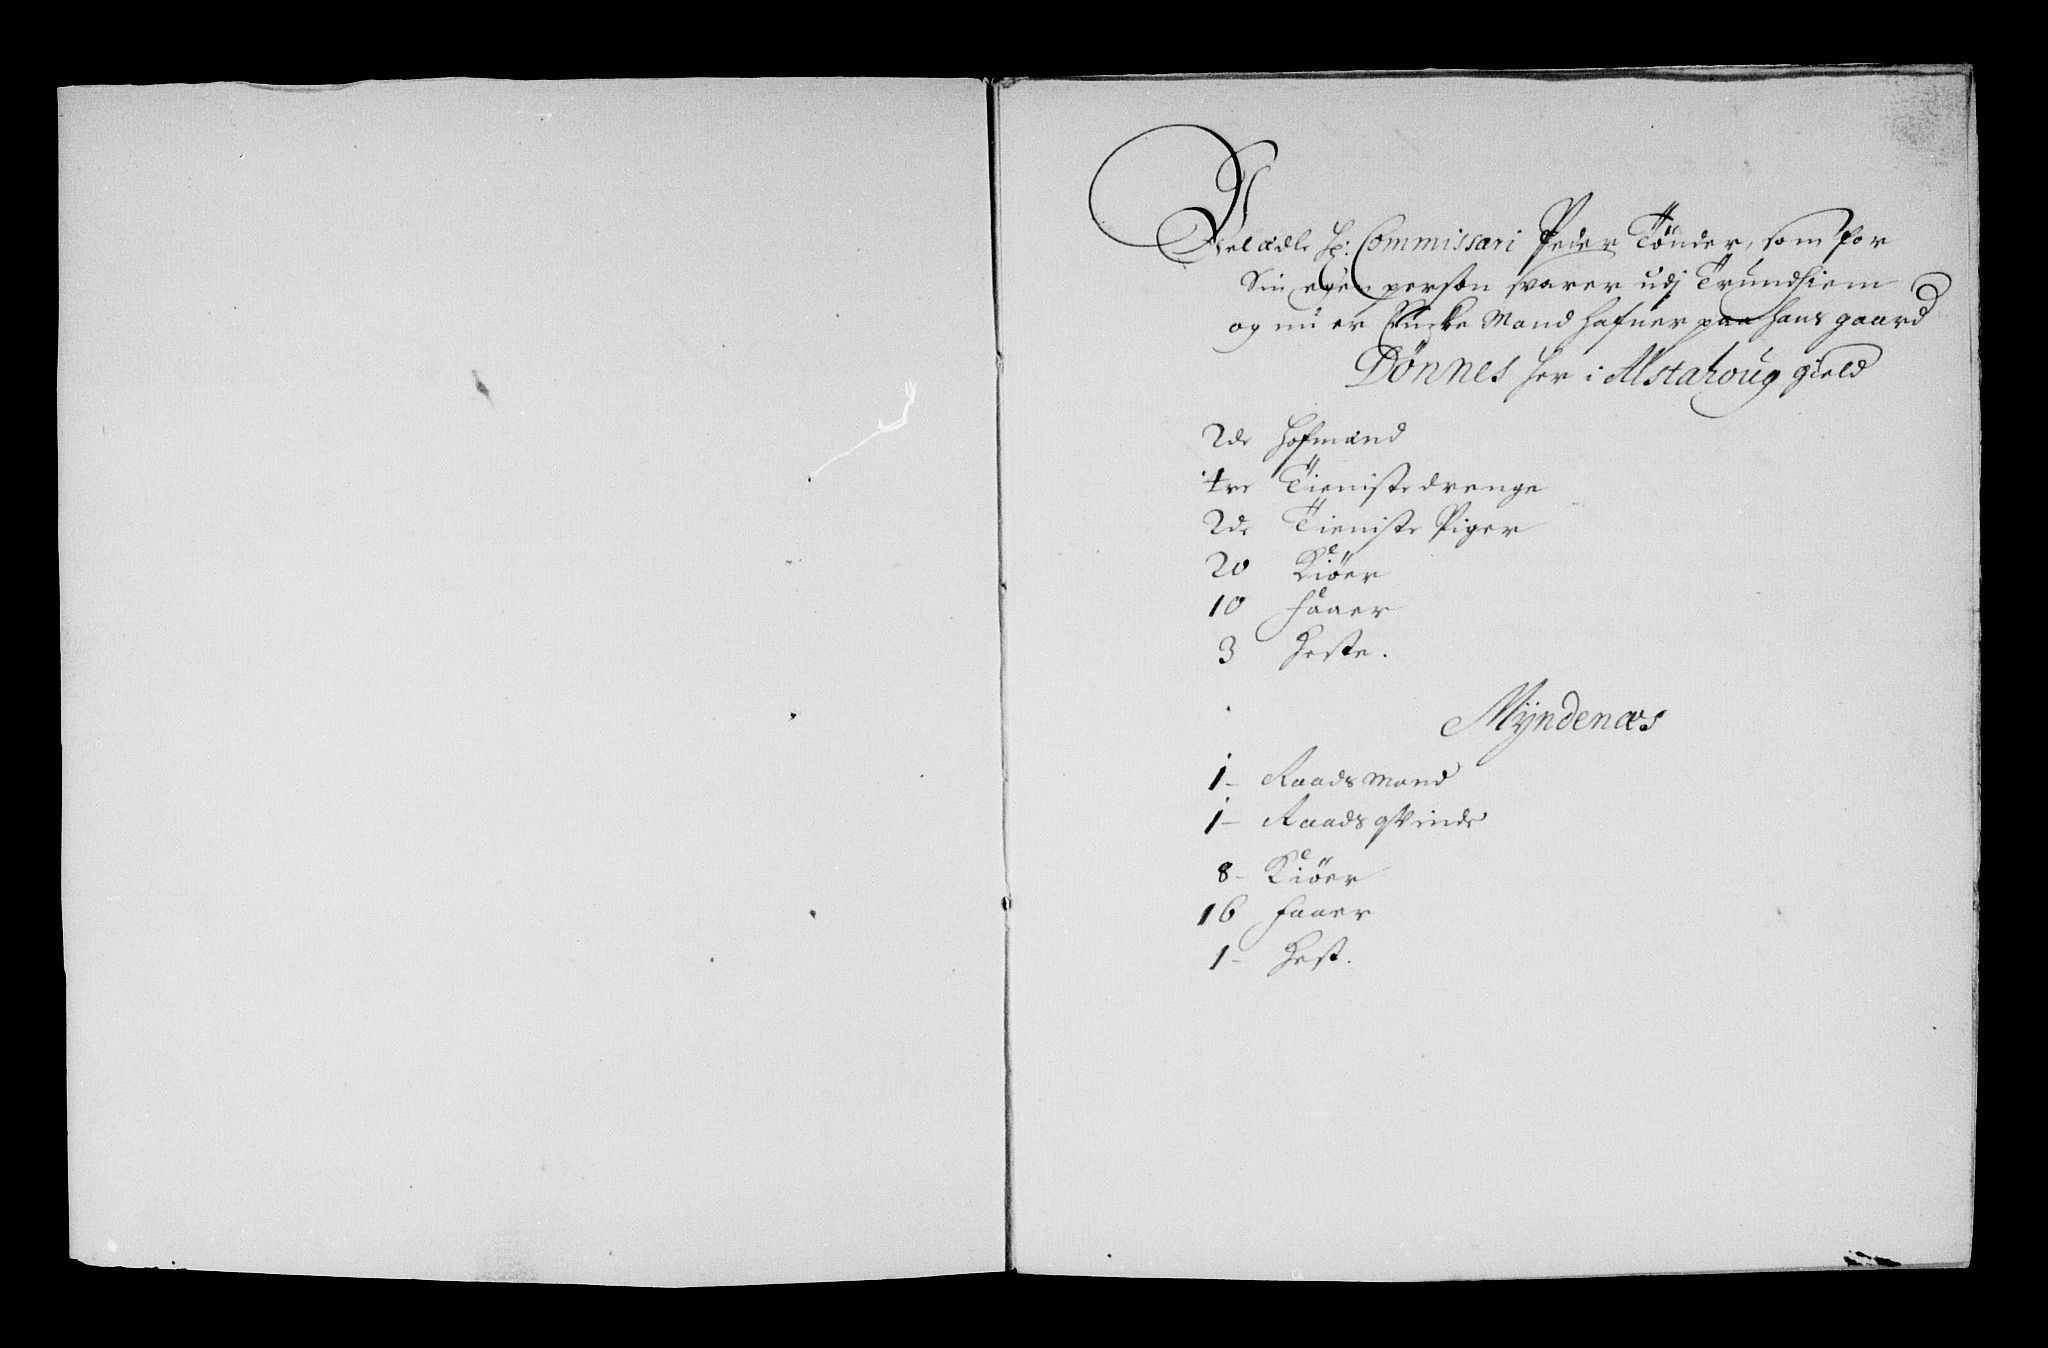 Vel ædle Hr: Commissari Peder Tönder, som for
Sin egen person svarer udj Trundhiem
og nu er Encke Mand hafuer paa hans gaard
Dönnes her i Alstahoug gield
2de Hofmænd
tre Tieniste drenge
2de Tieniste Piger
20 Kiöer
10 faaer
3 Heste.
Mÿndenæs
1 - Raads Mand
1 - Raads qvinde
8 - Kiöer
16 faaer
1 - Hest.